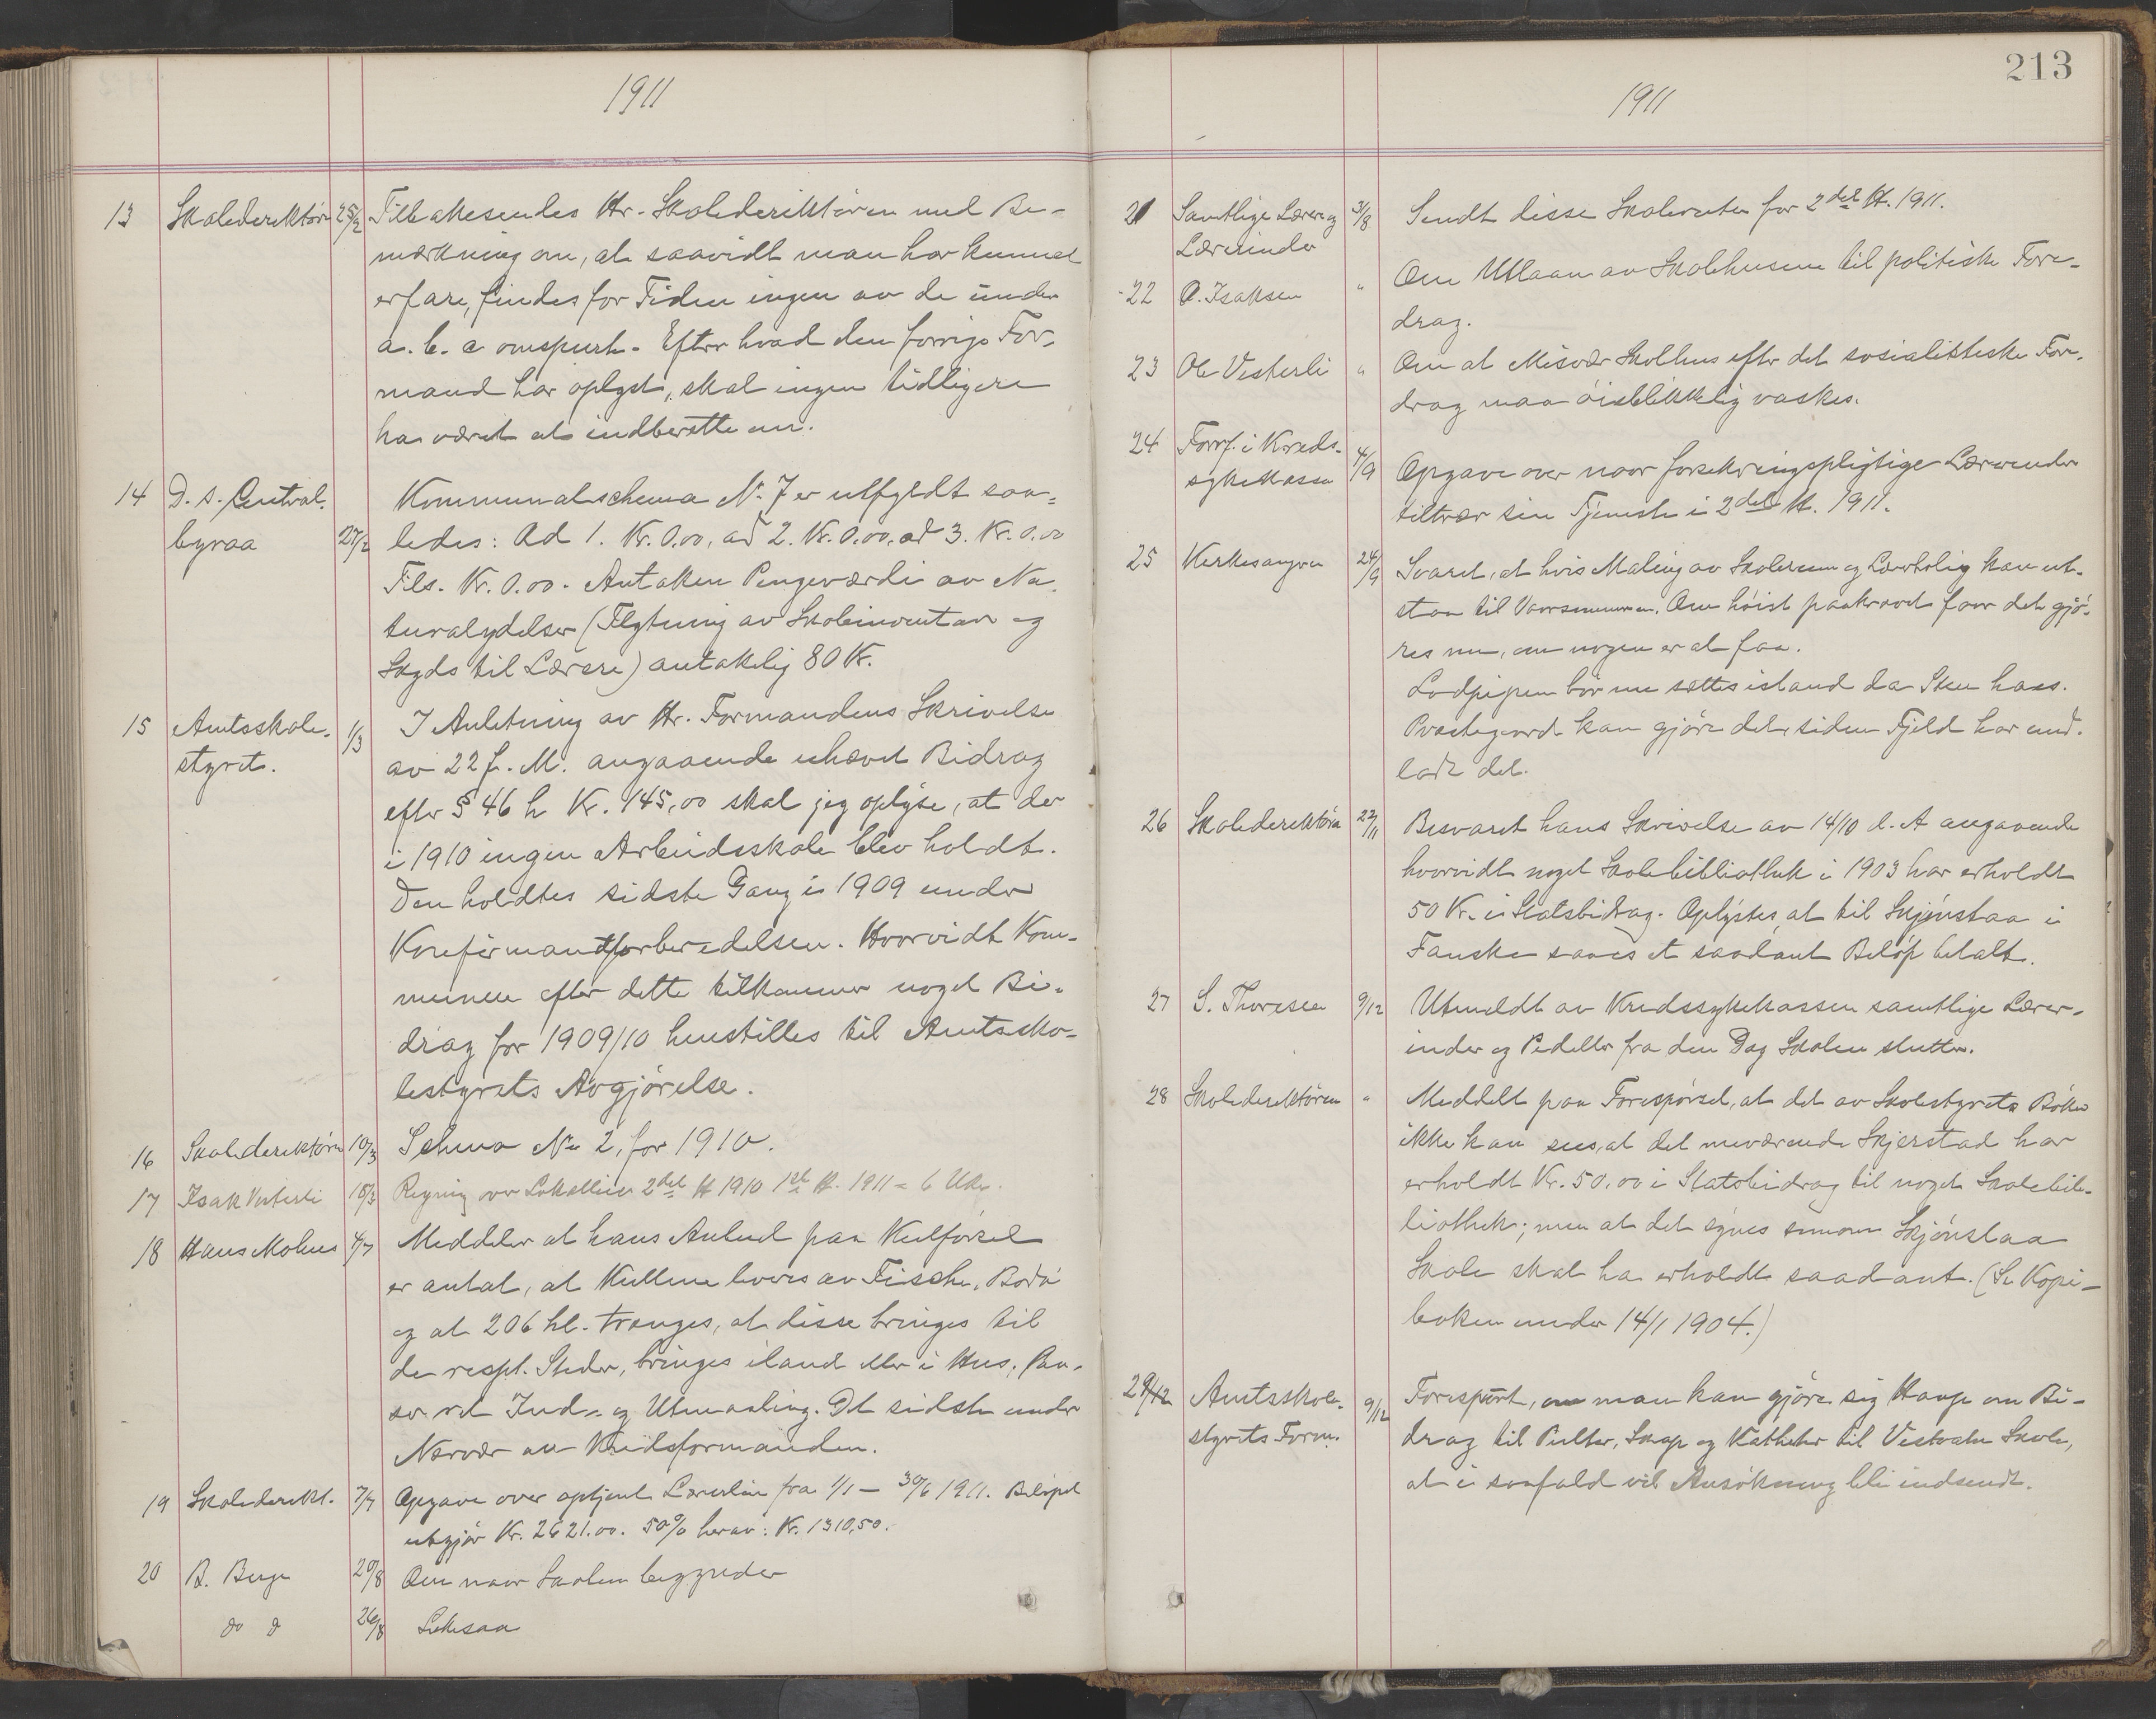 1911
13 Skolederektören 25/2 Tilbakesendes Hr. Skolederiktören med Be-
mærkning om, at saavidt man har kunnet
erfare, findes for Tiden ingen av de under
a. b. c omspurte. Efter hvad den forrige For-
mand har oplyst, skal ingen tidligere
ha været at indberette om.
14 D. s. Central- Kommunalschema No 7 er utfyldt saa-
byraa 27/2 ledes: Ad 1. Kr. 0.00, ad 2. Kr. 0.00, ad 3. Kr. 0.00
Tils. Kr. 0.00. Antaken Pengeværdi av Na-
turalydelser (Flytning av Skoleinventar og
Skyds til Lærere) antakelig 80 Kr.
15 Amtsskole- 1/3 I Anledning av Hr. Formandens Skrivelse
styret. av 22 f. M. angaaende uhævet Bidrag
efter § 46 h Kr. 145,00 skal jeg oplyse, at der
i 1910 ingen Arbeidsskole blev holdt.
Den holdtes sidste Gang i 1909 under
Konfirmantforberedelsen. Hvorvidt Kom-
munen efter dette tilkommer noget Bi-
drag for 1909/10 henstilles til Amtssko-
lestyrets Avgjörelse.
16 Skolederektören 10/3 Schema No 2, for 1910.
17 Isak Vesterli 18/3 Regning over Lokalleie 2det H 1910 1ste H. 1911 = 6 Uker.
18 Hans Molnes 4/7 Meddeler at hans Anbud paa Kulförsel
er antat, at Kullene leveres av Fische, Bodö
og at 206 hl. trænges, at disse bringes til
de respt. Steder, bringes iland eller i Hus, Pas-
ser ved Ind- og Utmaaling. Det sidste under
Nærvær av Kredsformanden.
19 Skolederekt. 7/7 Opgave over optjent Lærerlön fra 1/1 – 30/6 1911. Belöpet
utgjör Kr. 2621.00. 50% herav: Kr. 1310,50.
20 B. Berge 20/8 Om naar Skolen begynder
do d 26/8 Likesaa
213
1911
21 Samtlige Lærere og 31/8 Sendt disse Skoleruter for 2det H. 1911.
Lærerinder
22 O. Isaksen " Om Utlaan av Skolehusene til politiske Fore-
drag.
23 Ole Vesterli " Om at Misvær Skolhus efter det sosialistiske Fore-
drag maa öieblikkelig vaskes.
24 Forrf. i Kreds-
sykekassen 4/9 Opgave over naar forsekringspligtige Lærerinder
tiltrær sin Tjeneste i 2det H. 1911.
25 Kirkesangeren 24/9 Svaret, at hvis Maling av Skolerum og Lærerbolig kan ut-
staa til Vaarsommeren. Om höist paakrævet faar det gjö-
res nu, om nogen er at faa.
Lodpipen bör nu sættes istand da Sten haes.
Prestegaard kan gjöre det, siden Fjeld har und-
ladt det.
26 Skolederektören 22/11 Besvaret hans Skrivelse av 14/10 d. A angaaende
hvorvidt noget Skolebibliothek i 1903 har erholdt
50 Kr. i Statsbidrag. Oplystes, at til Skjönstaa i
Fauske saaes et saadant Belöp betalt.
27 S. Thoresen 9/12 Utmeldt av Kredssykekassen samtlige Lærer-
inder og Pedeller fra den Dag Skolen slutter.
28 Skolederektören " Meddelt paa Forespörsel, at det av Skolestyrets Böker
ikke kan sees, at det nuværende Skjerstad har
erholdt Kr. 50,00 i Statsbidrag til noget Skolebib-
liothek; men at det synes somom Skjönstaa
Skole skal ha erholdt saadant. (Se Kopi-
boken under 14/1 1904.)
29/12 Amtsskole- 9/12 Forespurt, om man kan gjöre sig Haap om Bi-
styrets Form. drag til Pulter, Skap og Katheter til Vestvatn Skole,
at i saafald vil Ansökning bli indsendt.